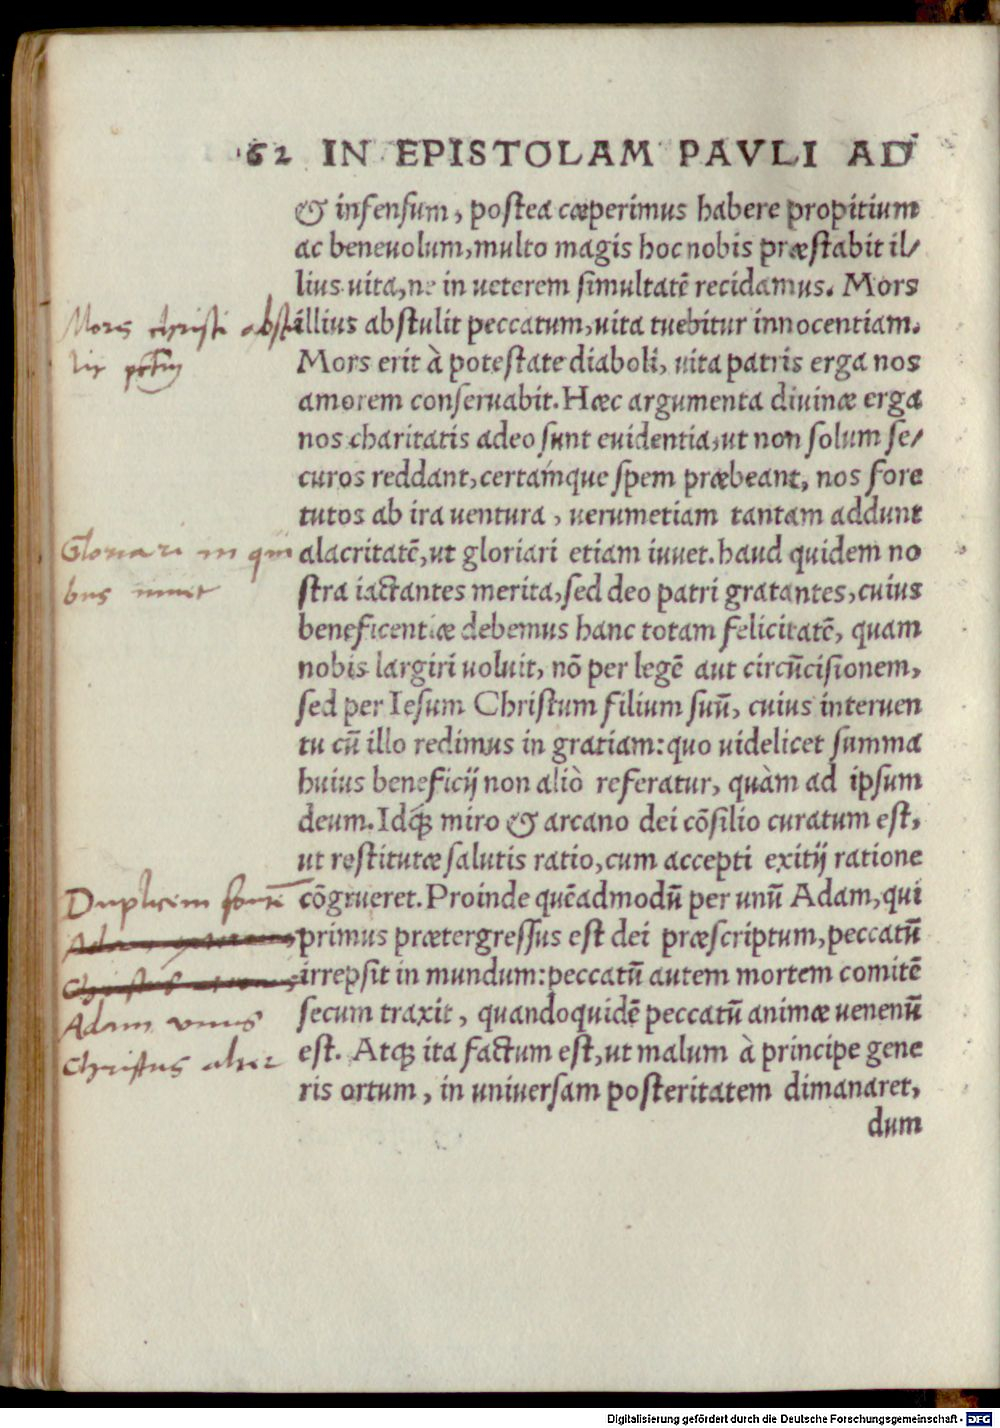 62 IN EPISTOLAM PAVLI AD
& infensum, postea cœperimus habere propitium
ac beneuolum, multo magis hoc nobis præstabit il/
lius uita, ne in ueterem simultatē recidamus. Mors
illius abstulit peccatum, uita tuebitur innocentiam.
Mors erit à potestate diaboli, uita patris erga nos
amorem conseruabit. Hæc argumenta diuinæ erga
nos charitatis adeo sunt euidentia, ut non solum se/
curos reddant, certamque spem præbeant, nos fore
tutos ab ira uentura, uerumetiam tantam addunt
alacritatē, ut gloriari etiam iuuet. haud quidem no
stra iactantes merita, sed deo patri gratantes, cuius
beneficentiæ debemus hanc totam felicitatē, quam
nobis largiri uoluit, nō per legē aut circūcisionem,
sed per Iesum Christum filium suū, cuius interuen
tu cū illo redimus in gratiam: quo uidelicet summa
huius beneficij non aliò referatur, quàm ad ipsum
deum. Idq́; miro & arcano dei cōsilio curatum est,
ut restitutæ salutis ratio, cum accepti exitij ratione
cōgrueret. Proinde quēadmodū per unū Adam, qui
primus prætergressus est dei præscriptum, peccatū
irrepsit in mundum: peccatū autem mortem comitē
secum traxit, quandoquidē peccatū animæ uenenū
est. Atq; ita factum est, ut malum à principe gene
ris ortum, in uniuersam posteritatem dimanaret,
dum
Mors christi abstu
lit pctm
Gloriari in qui
bus iuuet
Duplicem fontē
Adam unus
Christus alter
Digitalisierung gefördert durch die Deutsche Forschungsgemeinschaft - DFG